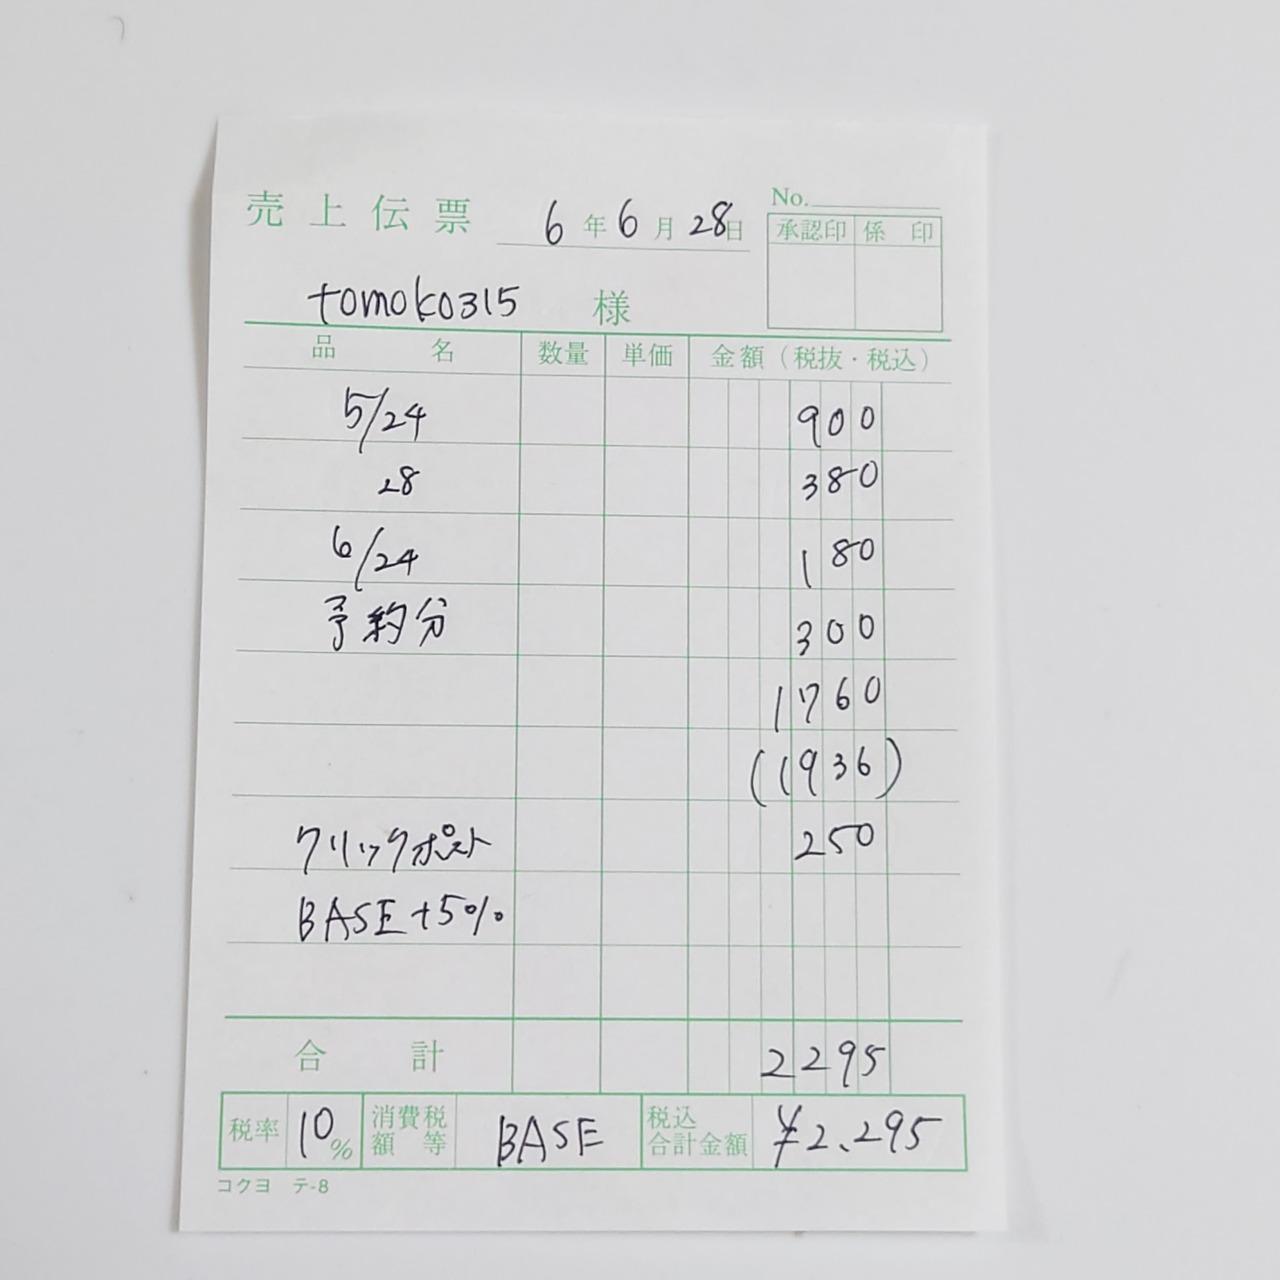 売上伝票 6年6月28日 No.
承認印 係印
tomoko315 様
品名 数量 単価 金額（税抜・税込）
5/24 900
28 380
6/24 180
予約分 300
1760
(1936)
クリックポスト 250
BASE+5%
合計 2295
税率 10% 消費税額等 BASE 税込合計金額 ¥2.295
コクヨ テ-8